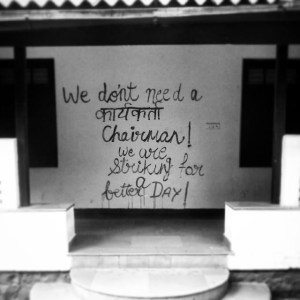 We don't need a
कार्यकर्ता
Chairman!
We are
Striking for
a
better DAY!